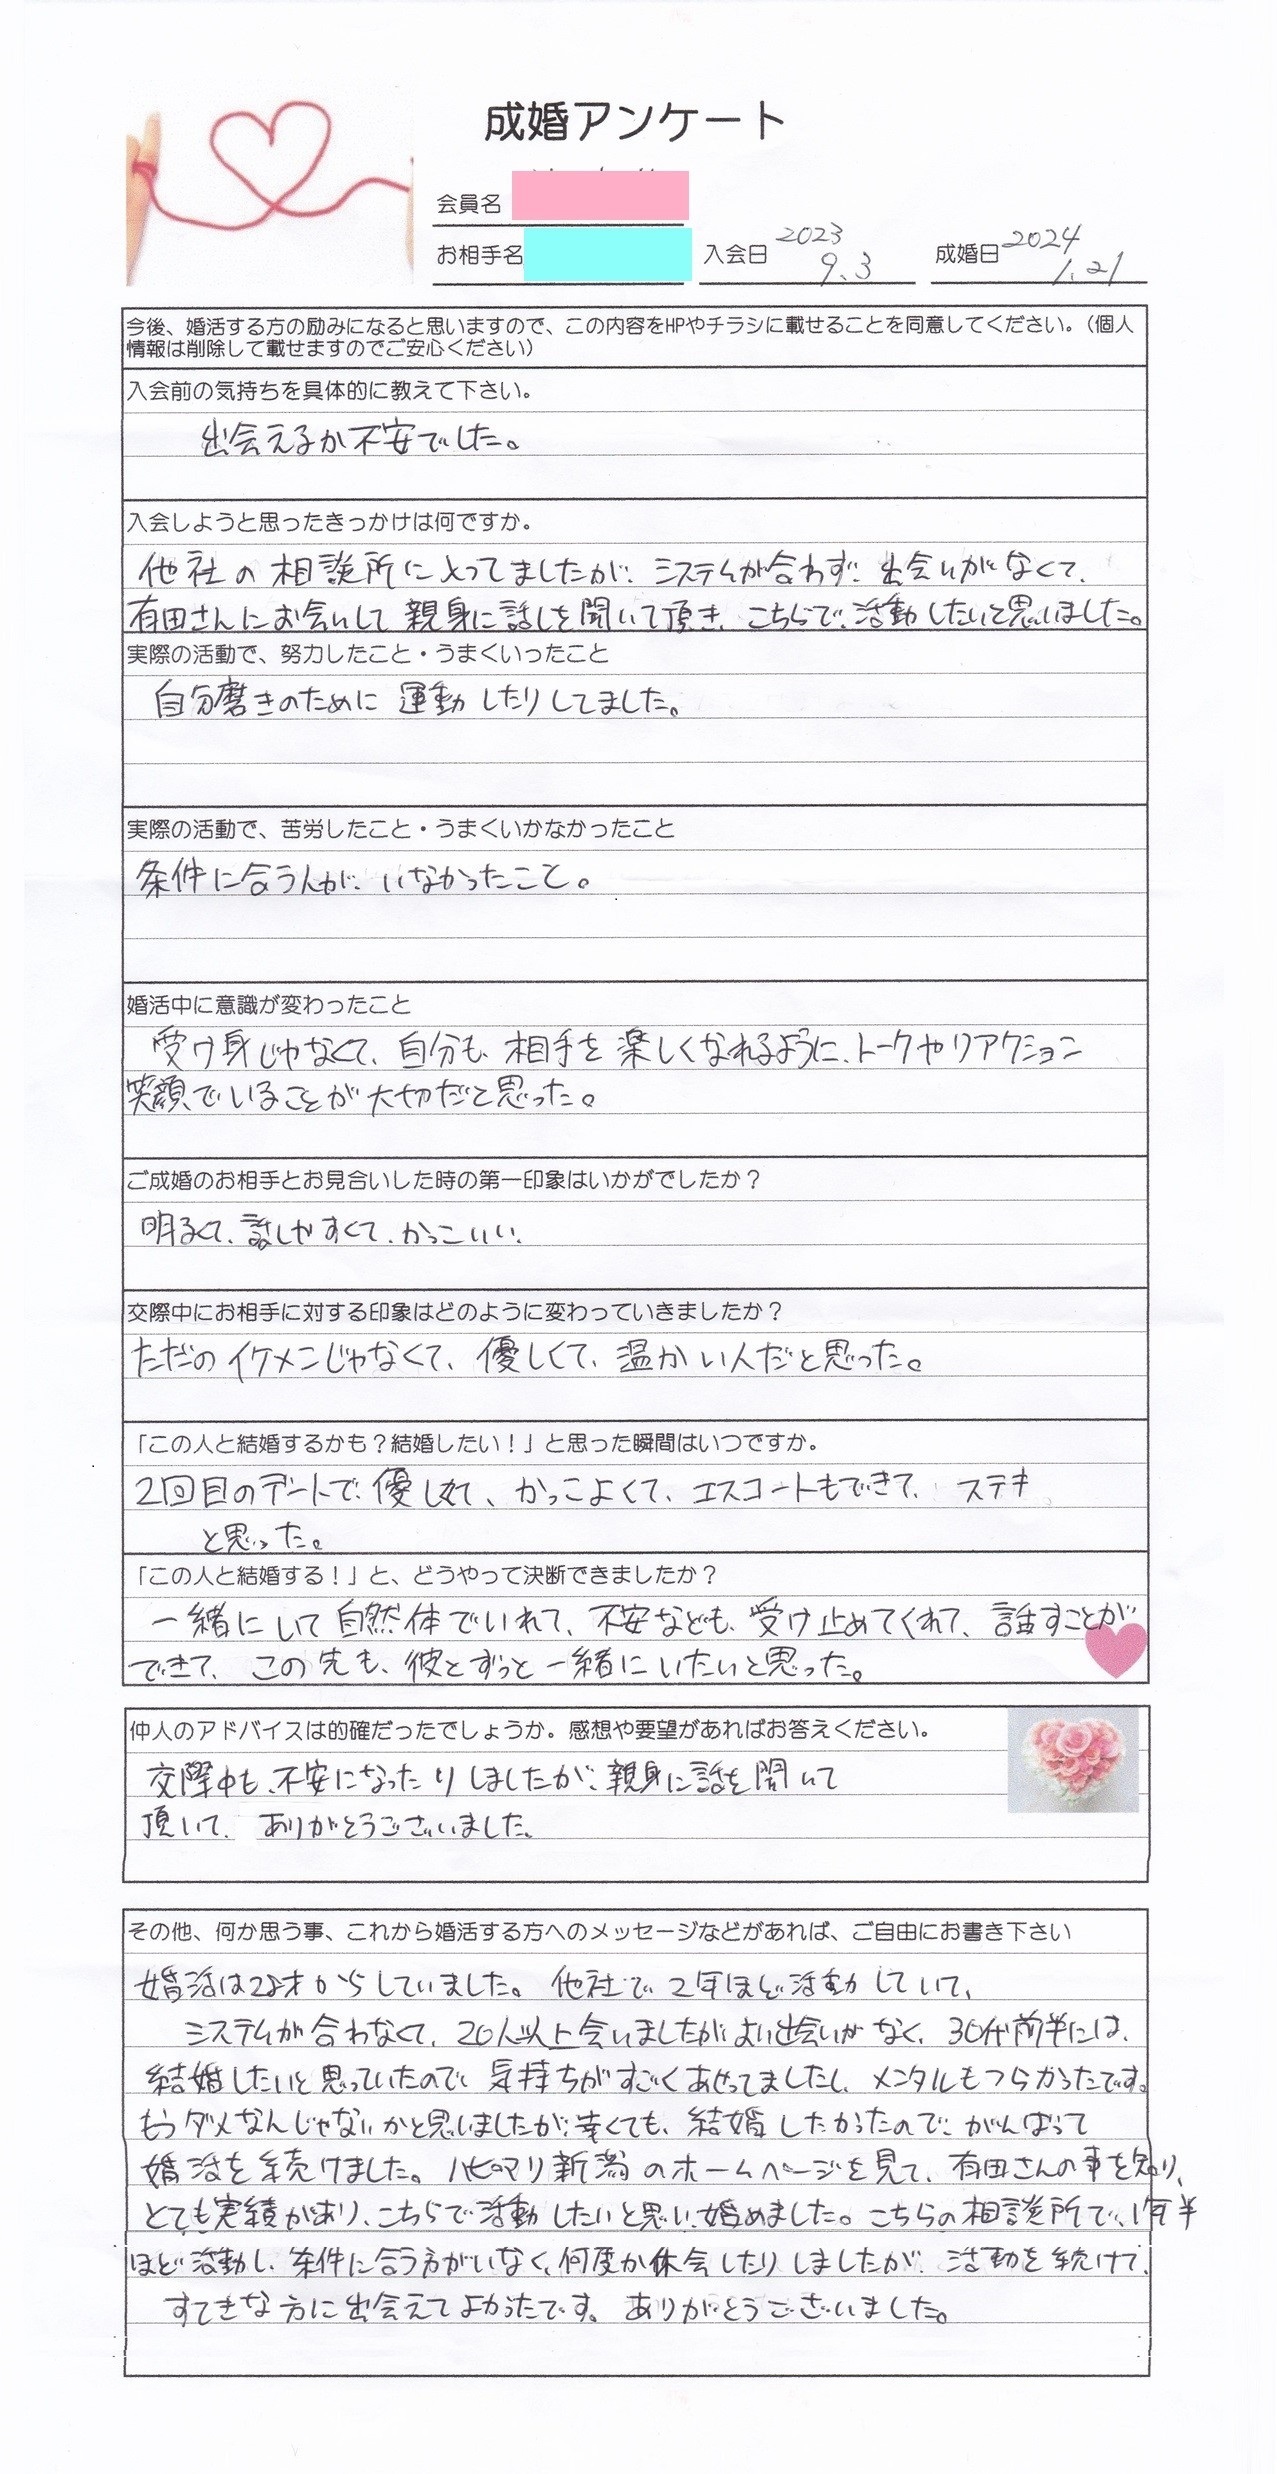 成婚アンケート
会員名
お相手名
入会日 2023 9.3
成婚日 2024 1.21
今後、婚活する方の励みになると思いますので、この内容をHPやチラシに載せることを同意してください。（個人
情報は削除して載せますのでご安心ください）
入会前の気持ちを具体的に教えて下さい。
出会えるか不安でした。
入会しようと思ったきっかけは何ですか。
他社の相談所に入ってましたが、システムが合わず、出会いがなくて、
有田さんにお会いして親身に話しを聞いて頂き、こちらで活動したいと思いました。
実際の活動で、努力したこと・うまくいったこと
自分磨きのために運動したりしてました。
実際の活動で、苦労したこと・うまくいかなかったこと
条件に合う人が、いなかったこと。
婚活中に意識が変わったこと
受け身じゃなくて、自分も、相手を楽しくなれるように、トークやリアクション
笑顔でいることが大切だと思った。
ご成婚のお相手とお見合いした時の第一印象はいかがでしたか？
明るくて、話しやすくて、かっこいい、
交際中にお相手に対する印象はどのように変わっていきましたか？
ただのイケメンじゃなくて、優しくて、温かい人だと思った。
「この人と結婚するかも？結婚したい！」と思った瞬間はいつですか。
2回目のデートで、優しくて、かっこよくて、エスコートもできて、ステキ
と思った。
「この人と結婚する！」と、どうやって決断できましたか？
一緒にして自然体でいれて、不安なども、受け止めてくれて、話すことが
できて、この先も、彼とずっと一緒にいたいと思った。
仲人のアドバイスは的確だったでしょうか。感想や要望があればお答えください。
交際中も、不安になったりしましたが、親身に話を聞いて
頂いて、ありがとうございました。
その他、何か思う事、これから婚活する方へのメッセージなどがあれば、ご自由にお書き下さい
婚活は 才からしていました。他社で2年ほど活動していて、
システムが合わなくて、20人以上会いましたがよい出会いがなく、30代前半には、
結婚したいと思っていたので、気持ちがすごくあせってましたし、メンタルもつらかったです。
もうダメなんじゃないかと思いましたが、辛くても、結婚したかったので、がんばって
婚活を続けました。ハピマリ新潟のホームページを見て、有田さんの事を知り、
とても実績があり、こちらで活動したいと思い、始めました。こちらの相談所で、1年半
ほど活動し、条件に合う方がいなく、何度か休会したりしましたが、活動を続けて、
すてきな方に出会えてよかったです。ありがとうございました。